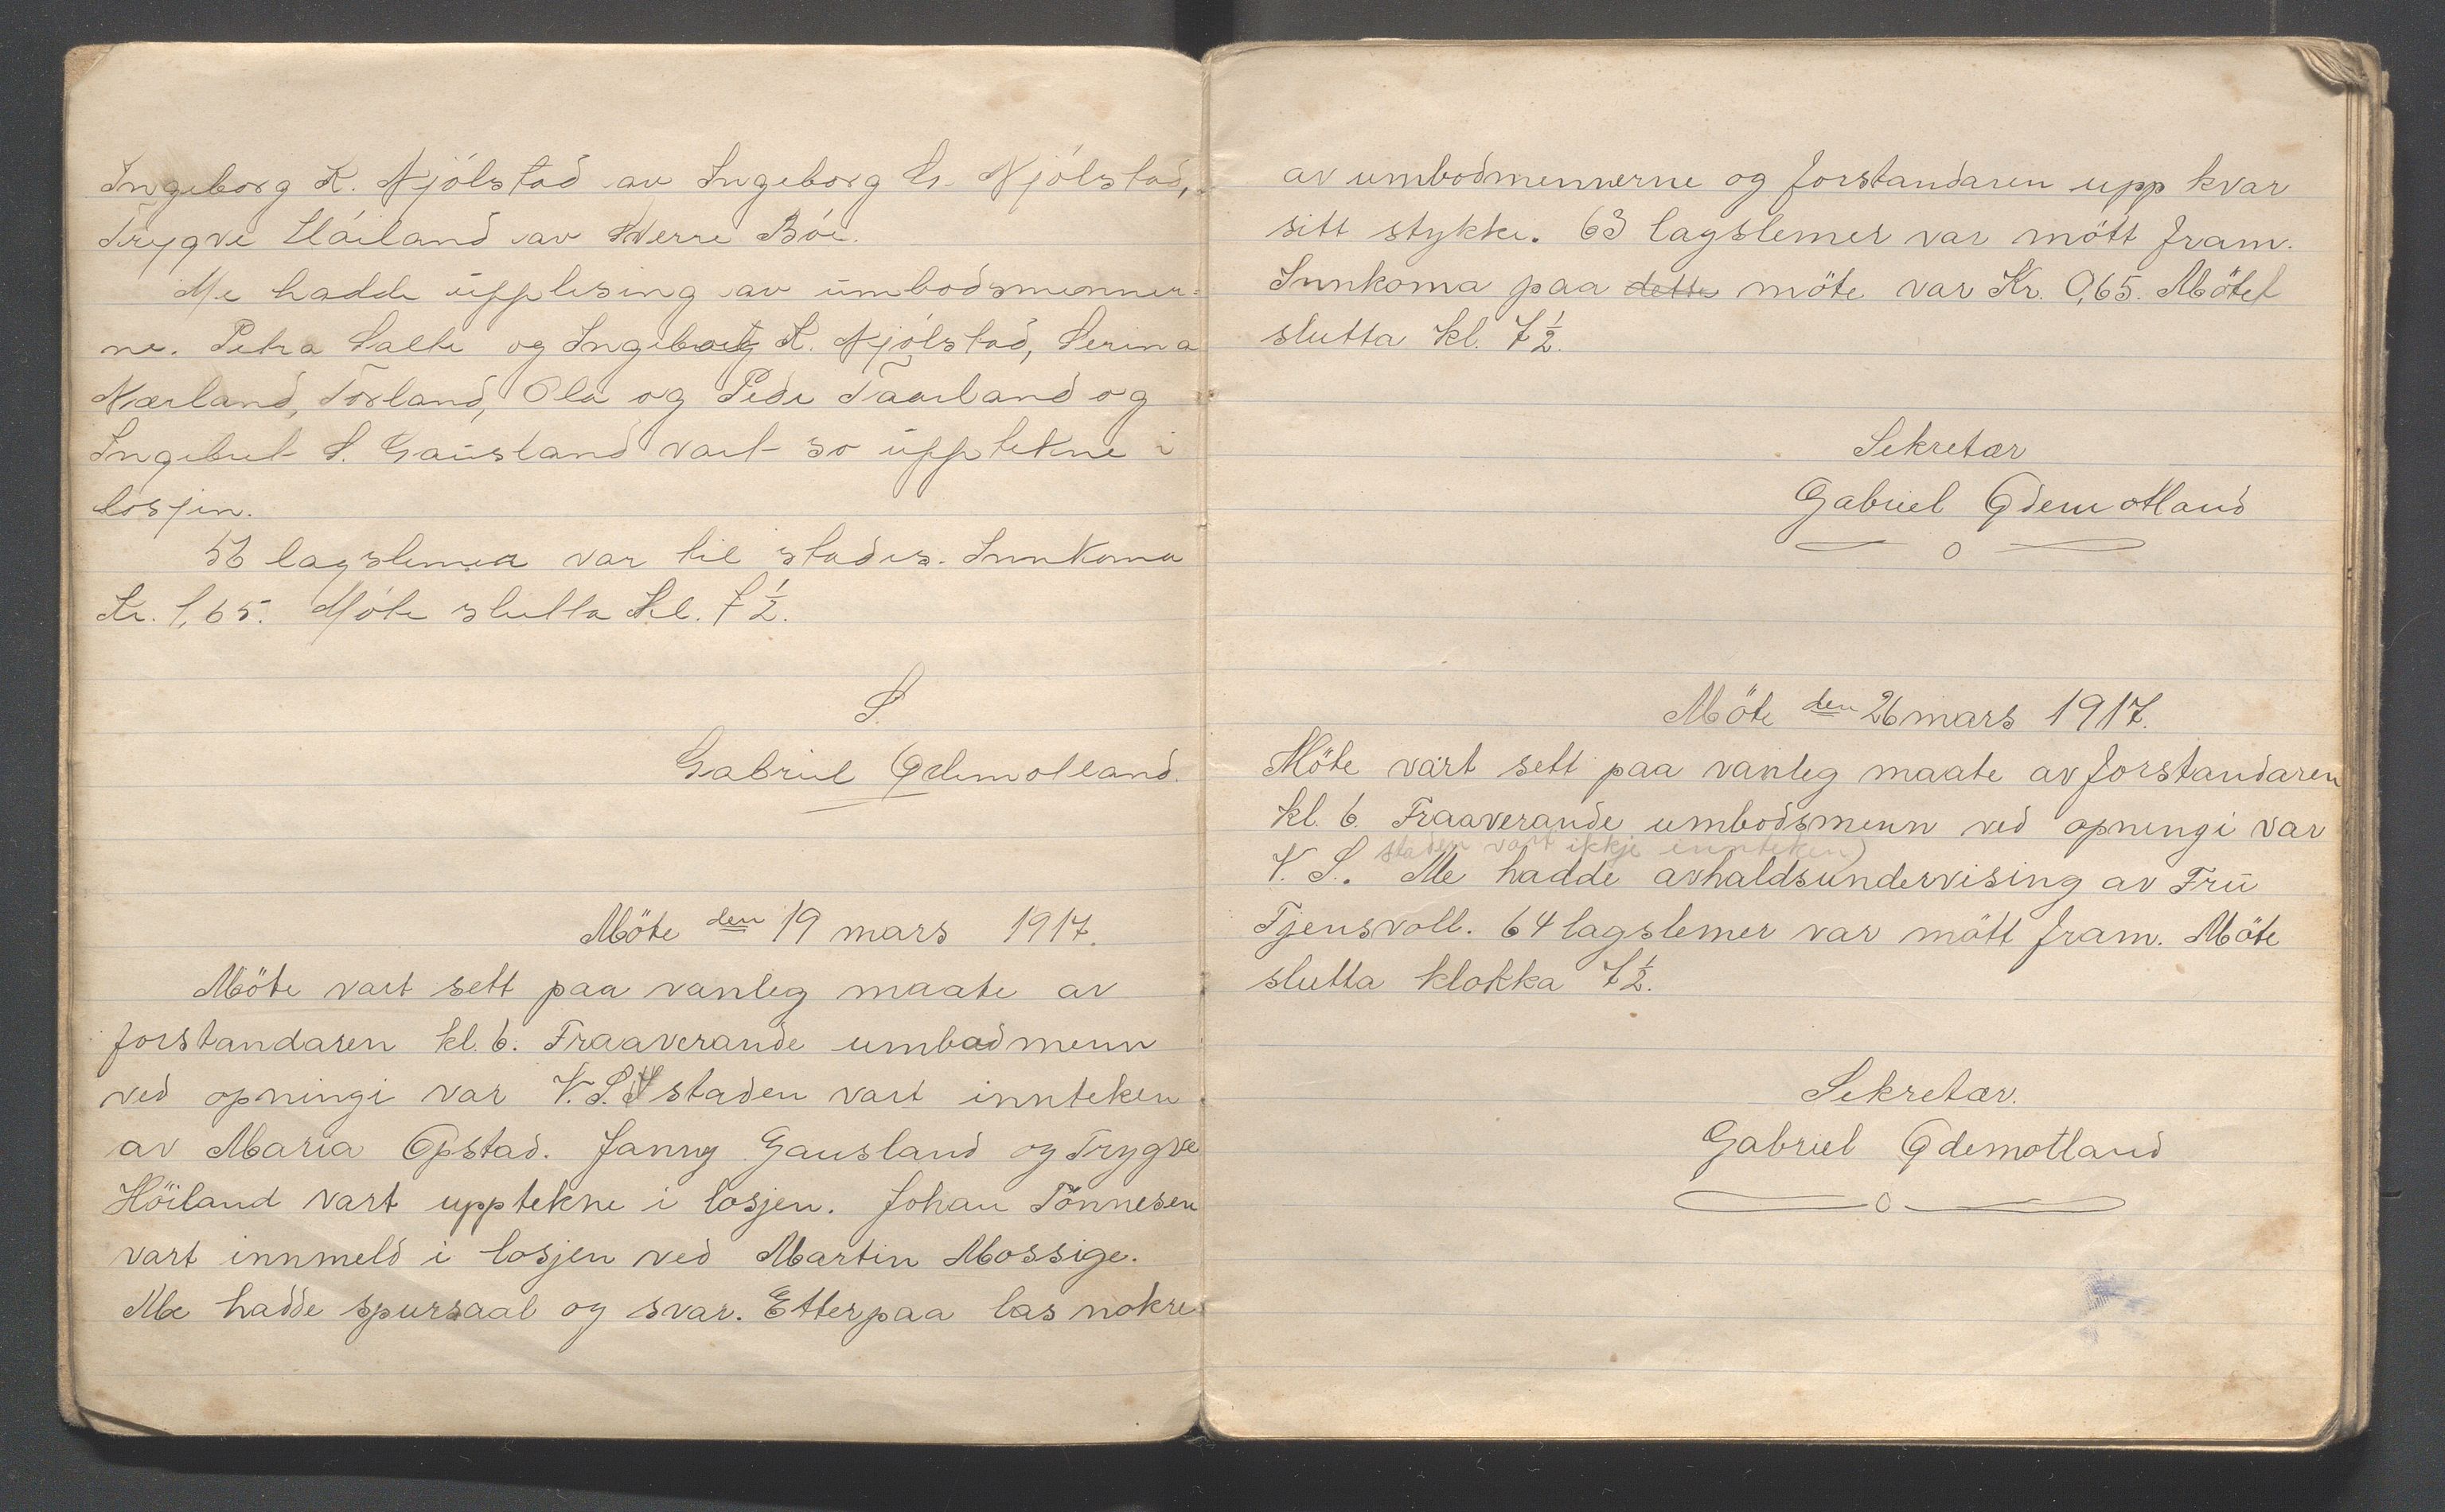 Ingeborg K. Njólstad av Ingeborg Kr. Njólstad,
Trygve Háiland av Sverre Bóe.
Me hadde upplesing av umbodsmenner-
ne. Petra Salte og Ingeborg K. Njólstad, Serina
Nærland, Torland, Ola og Peder Taarland og
Ingebret S. Gausland vart so upptekne i
losjen.
56 lagslemer var til stades. Innkoma
Kr. 1,65. Móte slutta kl. 7½.
S.
Gabriel Ødemotland.
Möte den 19 mars 1917.
Möte vart sett paa vanleg maate av
forstandaren kl. 6. Fraaverande umbodmenn
ved opningi var V.S. staden vart innteken
av Maria Opstad. Janny Gausland og Trygve
Höiland vart upptekne i losjen. Johan Tönnesen
vart innmeld i losjen ved Martin Mossige.
Me hadde spursaal og svar. Etterpaa las nokre
av umbodmennerne og forstandaren upp kvar
sitt stykke. 63 lagslemer var mött fram.
Innkoma paa dette möte var Kr. 0,65. Mötet
slutta kl. 7½.
Sekretær
Gabriel Ødemotland
Möte den 26 mars 1917.
Möte vart sett paa vanleg maate av forstandaren
kl. 6. Fraaverande umbodsmenn ved opningi var
staden vart ikkje innteken)
V. S. Me hadde avhaldsundervising av Fru
Tjensvoll. 64 lagslemer var mött fram. Möte
slutta klokka 7½.
Sekretær.
Gabriel Ødemotland